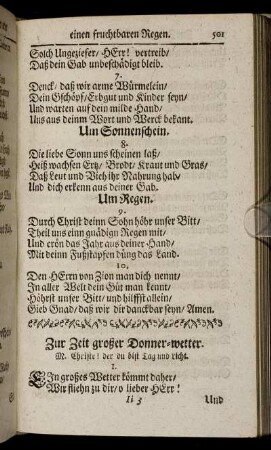 einen fruchtbaren Regen. 501
Solch Ungeziefer/ HErr! vertreib/
Daß dein Gab unbeschädigt bleib.
7.
Denck/ daß wir arme Würmelein/
Dein Gschöpf/ Erbgut und Kinder seyn/
Und warten auf dein milde Hand/
Uns aus deinm Wort und Werck bekant.
Um Sonnenschein.
8.
Die liebe Sonn uns scheinen laß/
Heiß wachsen Ertz/ Brodt/ Kraut und Gras/
Daß Leut und Vieh ihr Nahrung hab/
Und dich erkenn aus deiner Gab.
Um Regen.
9.
Durch Christ deinn Sohn höhr unser Bitt/
Theil uns einn gnädign Regen mit/
Und crön das Jahr aus deiner Hand/
Mit deinn Fußstapfen düng das Land.
10.
Den HErrn von Zion man dich nennt/
In aller Welt dein Güt man kennt/
Höhrst unser Bitt/ und hilffst allein/
Gieb Gnad/ daß wir dir danckbar seyn/ Amen.
Zur Zeit großer Donner-wetter.
M. Christe! der du bist Tag und Licht.
1.
EIn großes Wetter kömmt daher/
Wir fliehn zu dir/ o lieber HErr!
Ii 3 Und